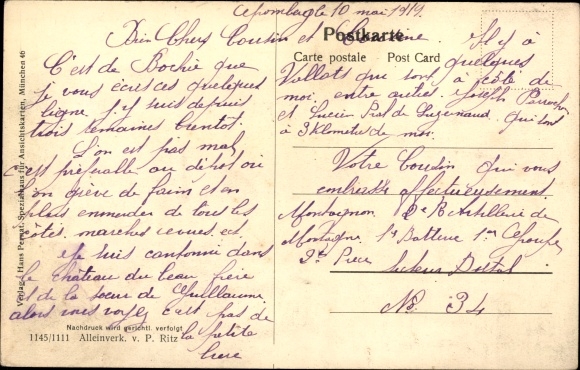 10 mai 1919.
Bien Chers Cousin et Cousine.
C'est de Bochie que
je vous écris ces quelques
ligne, j'y suis depuis
trois semaines bientôt.
L'on est pas mal
c'est préférable au dépôt où
l'on crève de faim et on
plus emmerder de tous les
côtés. marches revues, et.
Je suis cantonné dans
le château du beau frère
et de la soeur de Guillaume
alors vous voyez c'est pas de
la petite
biere
Postkarte
Carte postale Post Card
Il y a
quelques
qui sont à côté de
moi entre autres Joseph
et Lucien de qui sont
à 3 Klometre de moi.
Votre Cousin qui vous
embrasse affectueusement.
Montagnon. 2e R Artillerie de
Montagne 1e Batterie 1er Groupe
2e Piece
Secteur Postal
No. 34
Verlag: Hans Pernat, Spezialhaus für Ansichtskarten, München 46
Nachdruck wird gerichtl. verfolgt
1145/1111 Alleinverk. v. P. Ritz